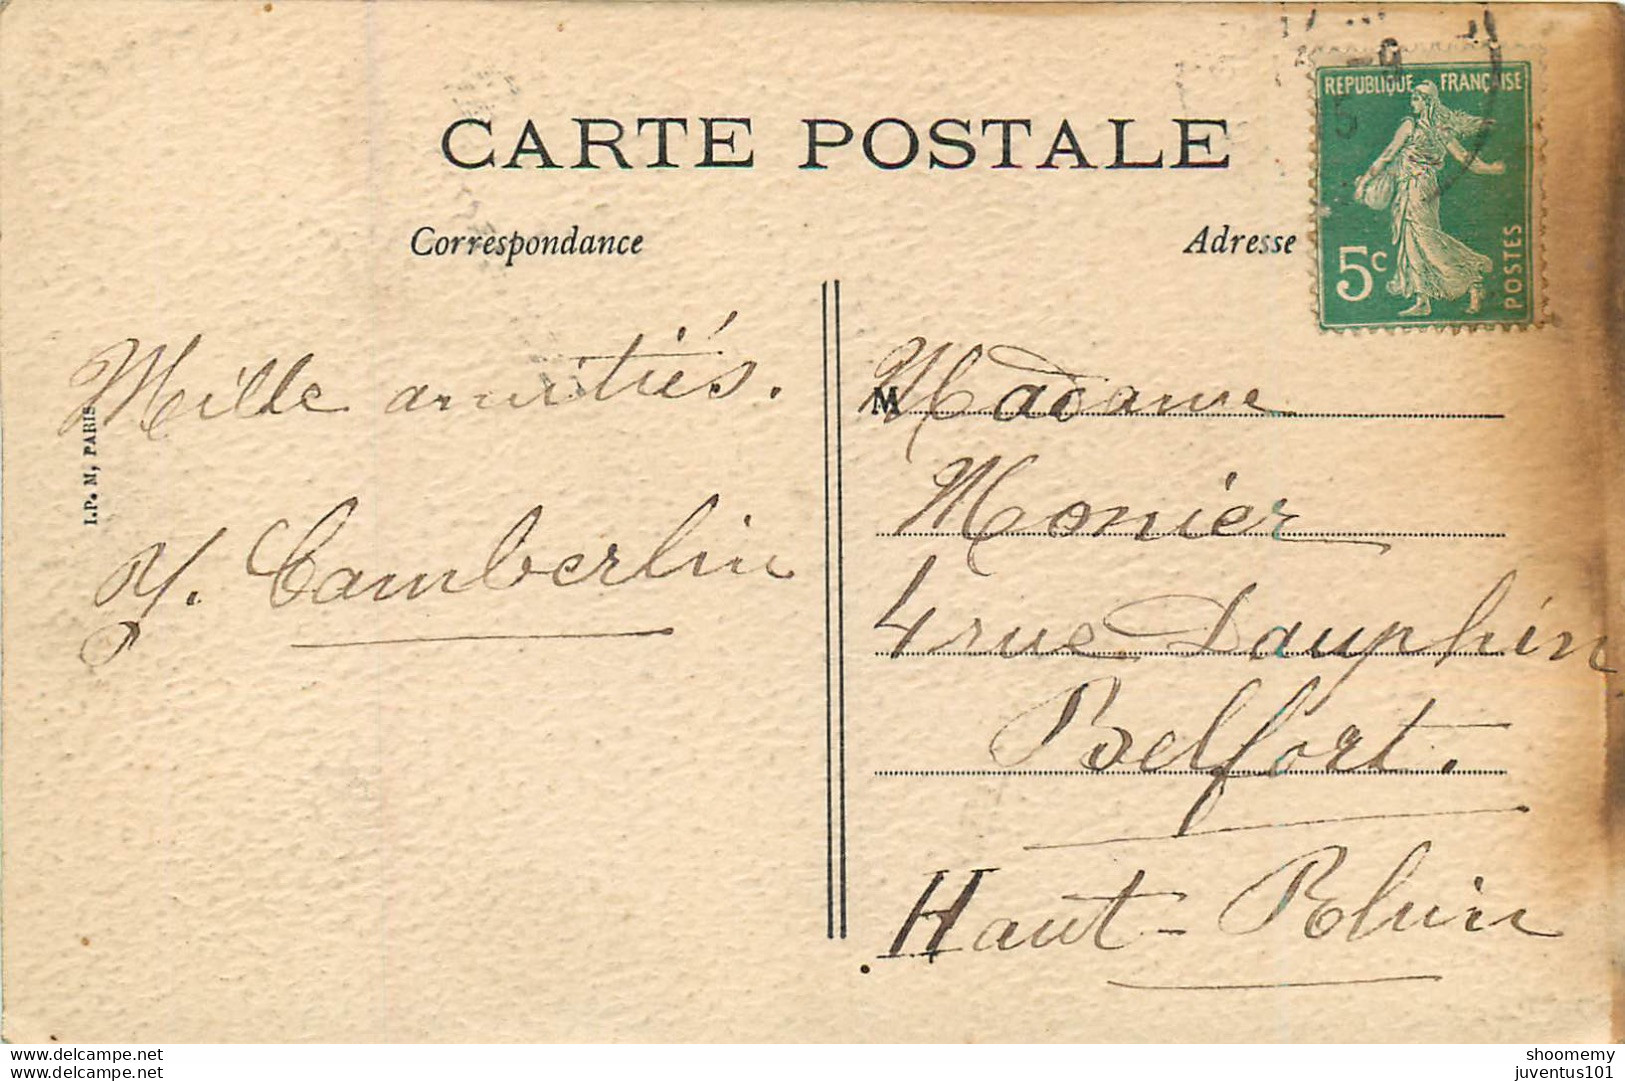 CARTE POSTALE
Correspondance
Adresse
REPUBLIQUE FRANÇAISE
5c
POSTES
Mille amitiés.
Y. Camberlin
I.P. M, PARIS
M Madame
Monier
4 rue Dauphin
Belfort.
Haut-Rhin
www.delcampe.net
www.delcampe.net
shoomemy
juventus101